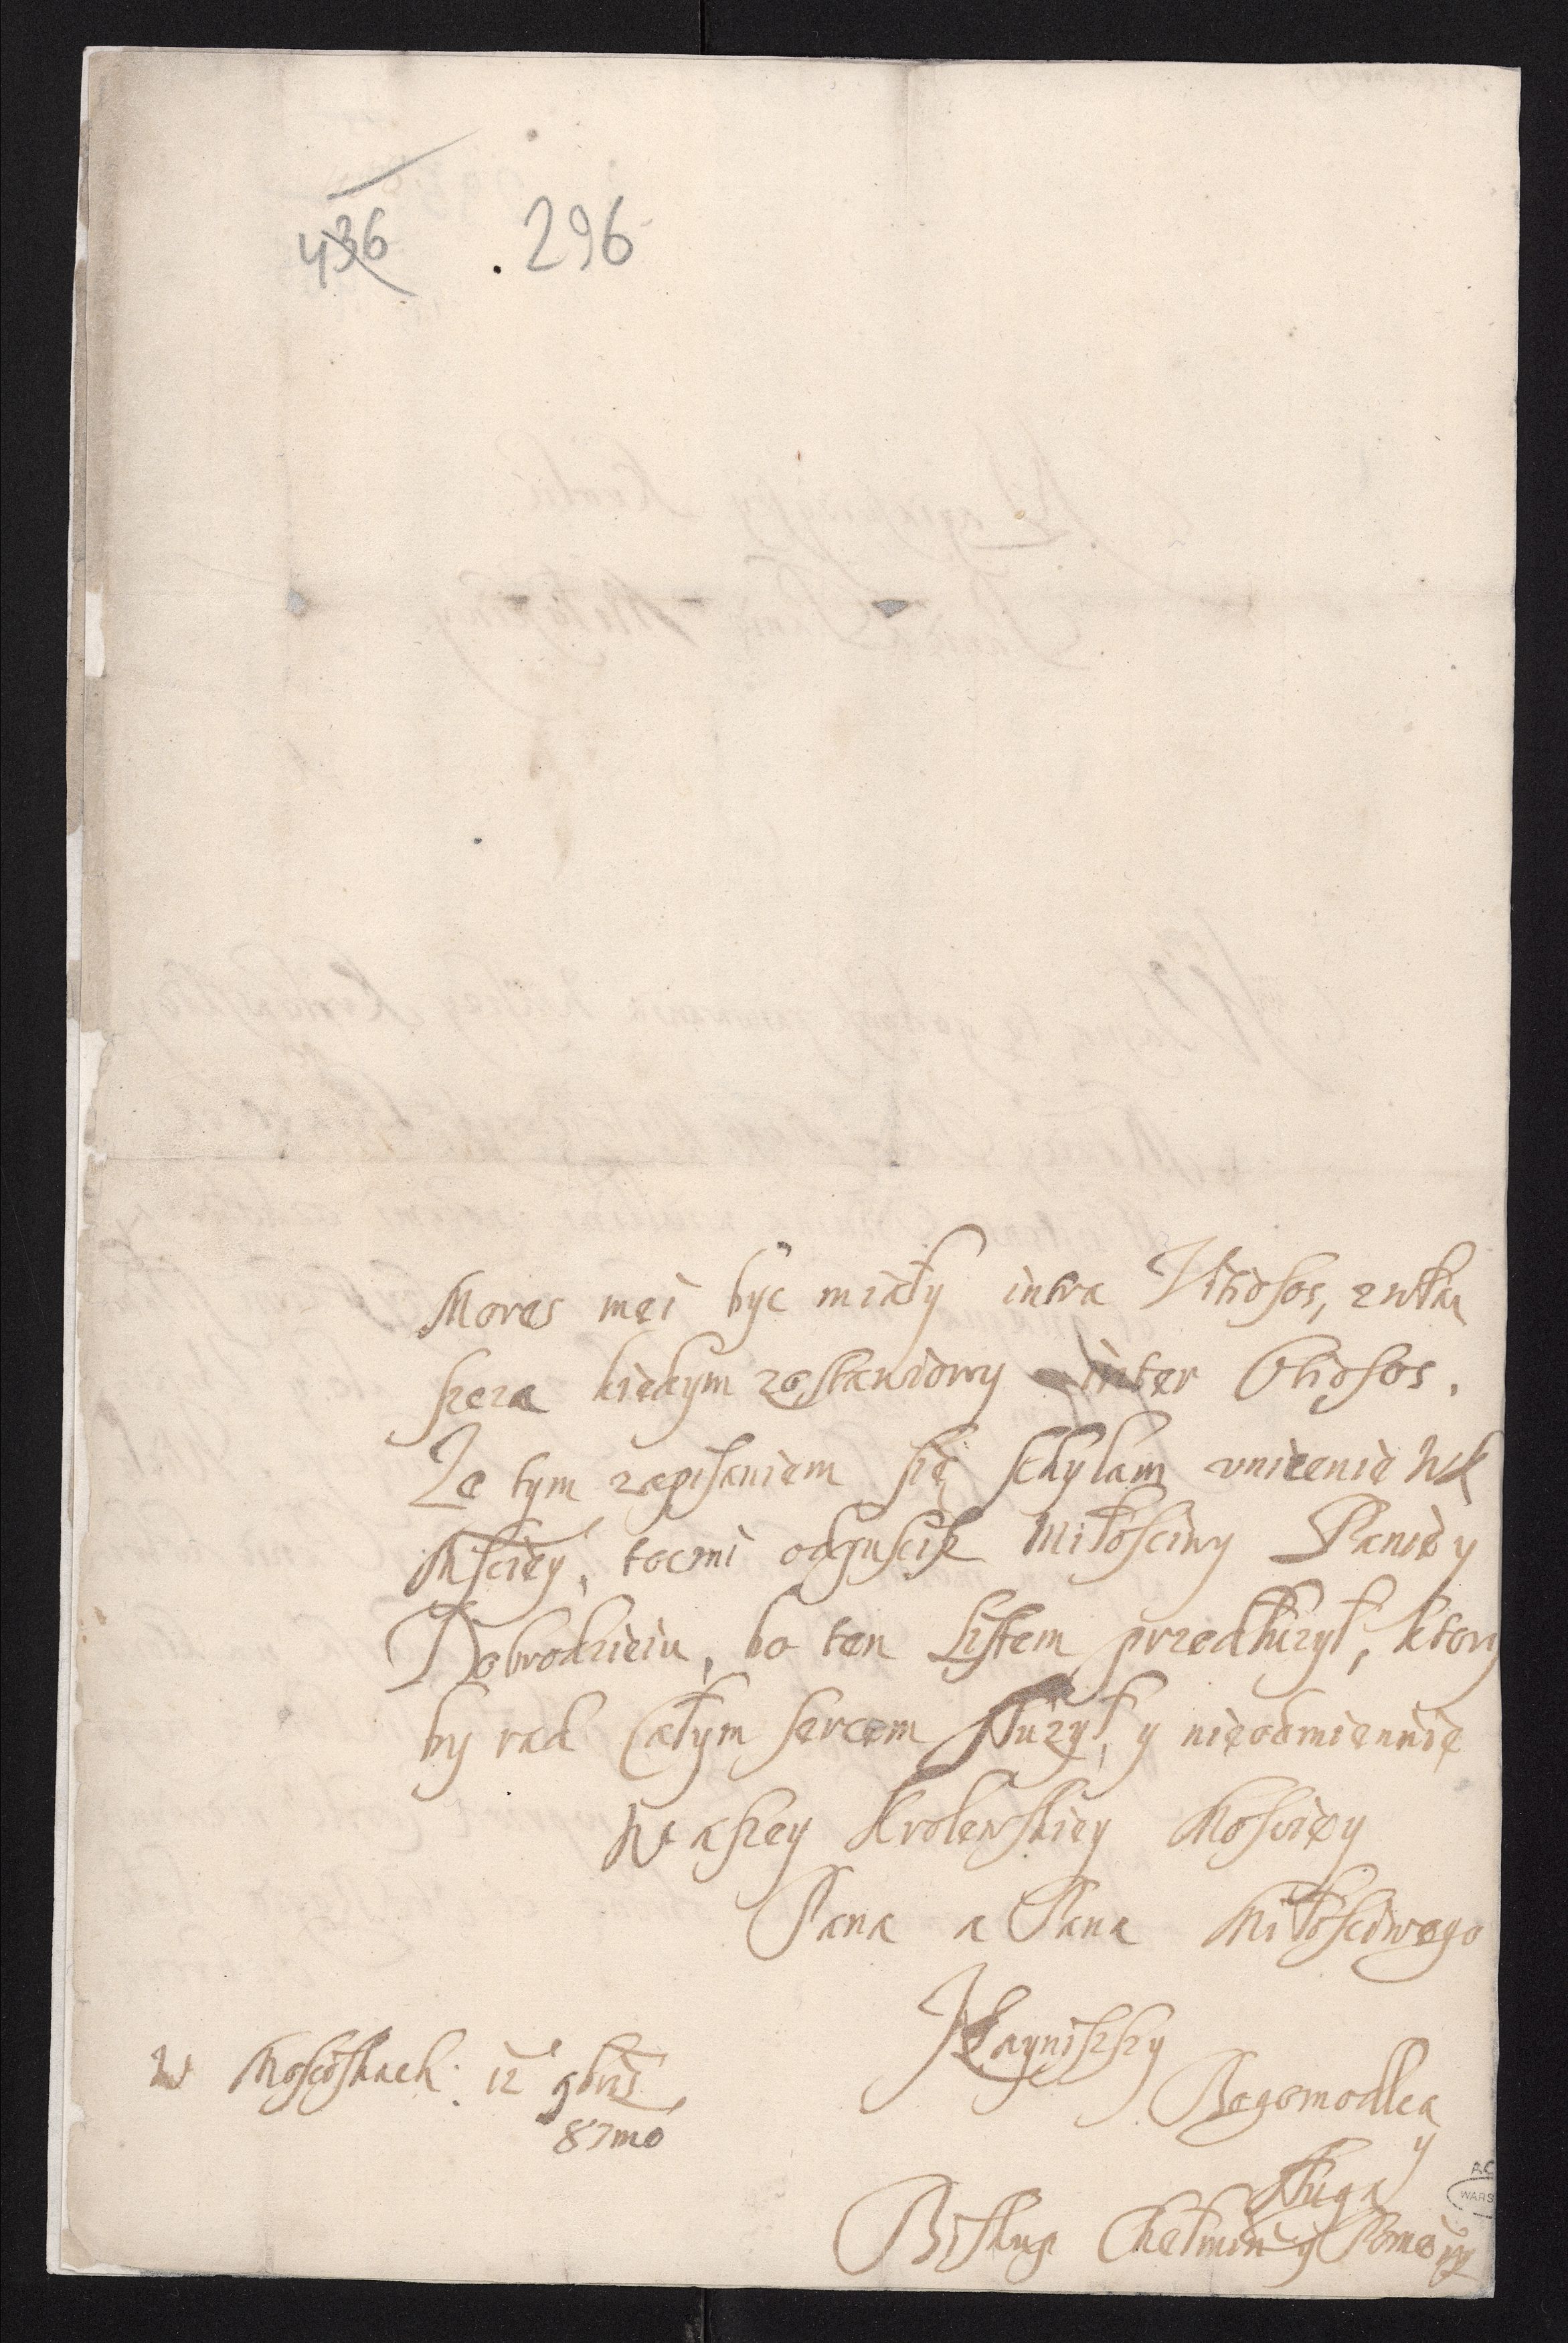 436 . 296
Mores mei byc miały intra Vitiosos, zwła
szcza kiedym zostawiony inter Otiosos.
Ze tym zapisaniem się schylam vniżenie WK
Mściey, tocmi odpuscisz Miłosciwy Panie y
Dobrodzieiu, bo ten Listem przedłużył, ktory
by rad Całym sercem służył, y nieodmiennie
Waszey Krolewskiey Mosciey
Pana a Pana Miłosciwego
Nayniszszy
Bogomodlca
y
sługa
Biskup Chełmiń y Pome
W Mosciskach 12 9bris
87mo
AG
WARS